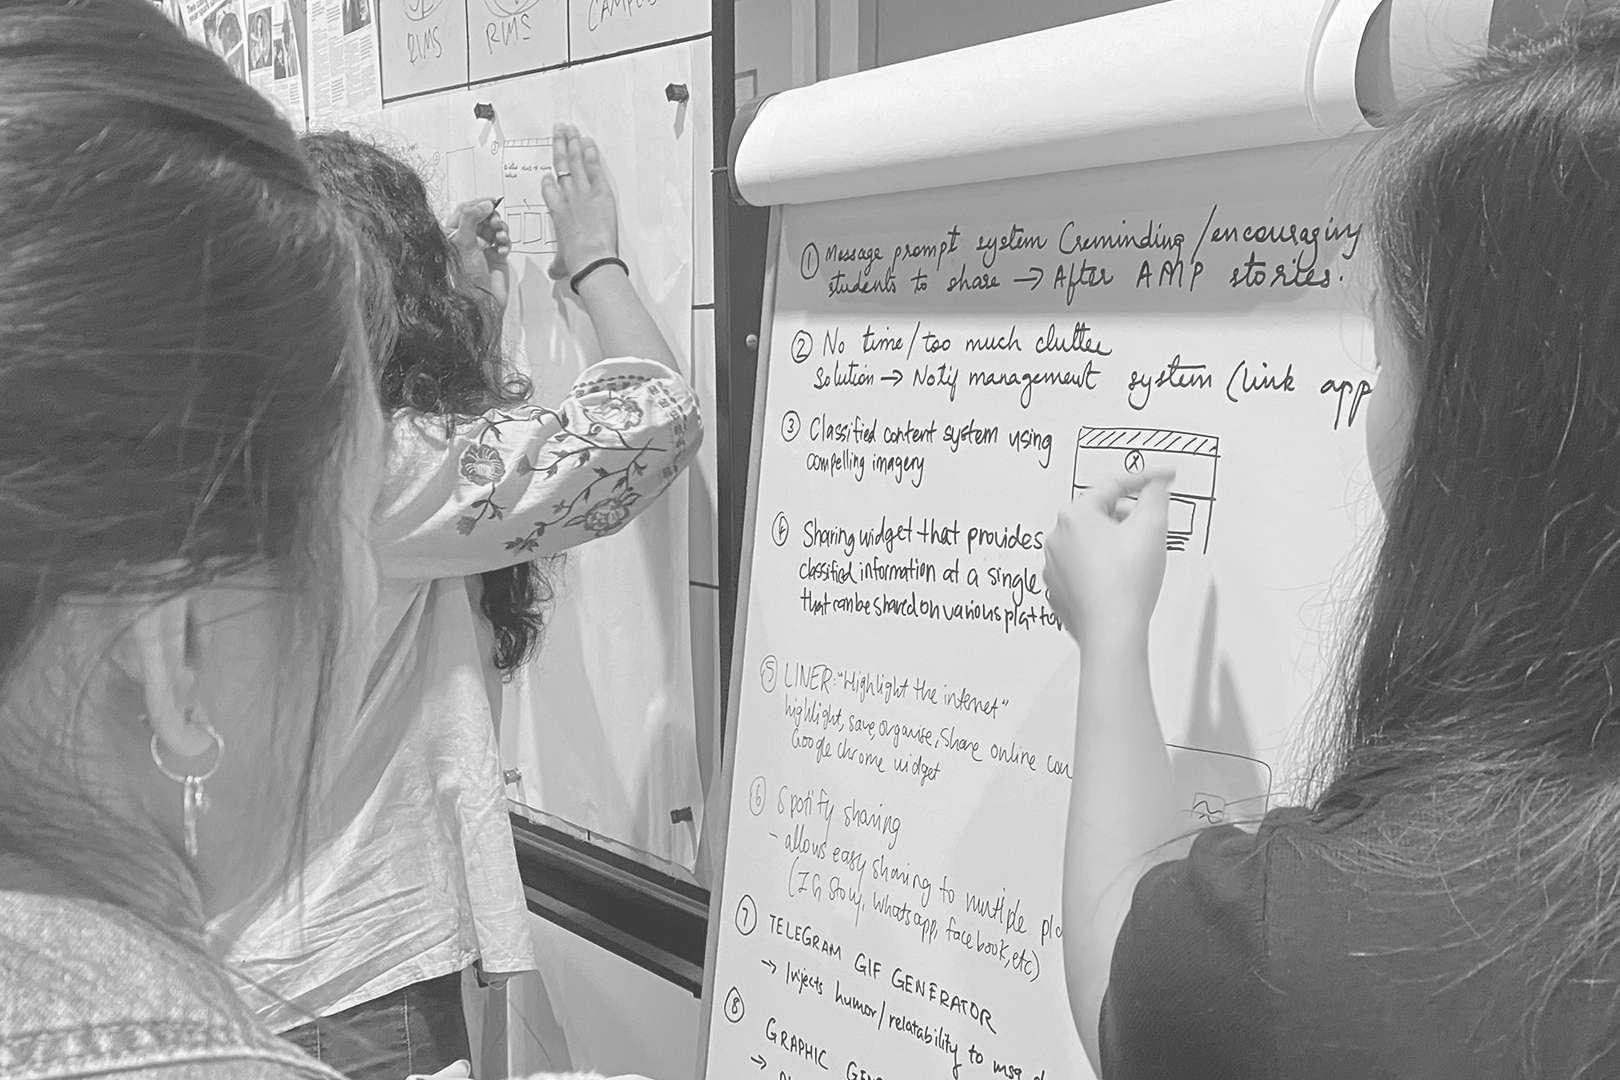 RMS
① Message prompt system (reminding/encouraging
students to share → After AMP stories.
② No time/too much clutter
Solution → Notif management system (link app
③ Classified content system using
compelling imagery
X
④ Sharing widget that provides
classified information at a single
that can be shared on various
⑤ LINER: "Highlight the internet"
highlight, save, organise, share online con
Google chrome widget
⑥ Spotify sharing
- allows easy sharing to multiple pla
(IG Story, whatsapp, facebook, etc)
⑦ TELEGRAM GIF GENERATOR
→ Injects humor/relatability to msg
⑧ GRAPHIC GEN
→